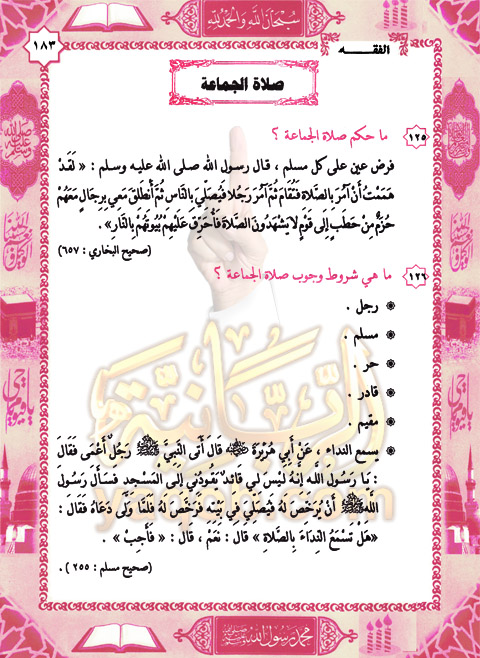 سبحان الله والحمد لله
الفقـــــه
١٨٣
صلاة الجماعة
١٢٥ ما حكم صلاة الجماعة ؟
فرض عين على كل مسلم ، قال رسول الله صلى الله عليه وسلم : « لَقَدْ
هَمَمْتُ أَنْ آمُرَ بِالصَّلَاةِ فَتُقَامَ ثُمَّ آمُرَ رَجُلًا فَيُصَلِّيَ بِالنَّاسِ ثُمَّ أَنْطَلِقَ مَعِي بِرِجَالٍ مَعَهُمْ
حُزَمٌ مِنْ حَطَبٍ إِلَى قَوْمٍ لَا يَشْهَدُونَ الصَّلَاةَ فَأُحَرِّقَ عَلَيْهِمْ بُيُوتَهُمْ بِالنَّارِ» .
(صحيح البخاري : ٦٥٧)
١٢٦ ما هي شروط وجوب صلاة الجماعة ؟
رجل .
مسلم .
حر .
قادر .
مقيم .
يسمع النداء ، عَنْ أَبِي هُرَيْرَةَ ﵁ قَالَ أَتَى النَّبِيَّ ﷺ رَجُلٌ أَعْمَى فَقَالَ
: يَا رَسُولَ اللَّهِ إِنَّهُ لَيْسَ لِي قَائِدٌ يَقُودُنِي إِلَى الْمَسْجِدِ فَسَأَلَ رَسُولَ
اللَّهِ ﷺ أَنْ يُرَخِّصَ لَهُ فَيُصَلِّيَ فِي بَيْتِهِ فَرَخَّصَ لَهُ فَلَمَّا وَلَّى دَعَاهُ فَقَالَ :
«هَلْ تَسْمَعُ النِّدَاءَ بِالصَّلَاةِ » قَالَ : نَعَمْ ، قَالَ : « فَأَجِبْ » .
(صحيح مسلم : ٢٥٥ ) .
محمد رسول الله ﷺ